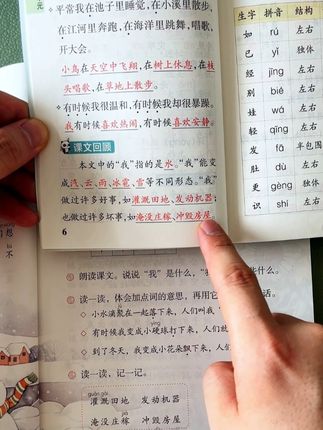 元
平常我在池子里睡觉,在小溪里散步,
在江河里奔跑,在海洋里跳舞,唱歌,
开大会。
小鸟在天空中飞翔,在树上休息,在枝
头唱歌,在草地上散步。
有时候我很温和,有时候我却很暴躁。
我有时候喜欢热闹,有时候喜欢安静。
课文回顾
本文中的“我”指的是水。“我”能变
成汽、云、雨、冰雹、雪等不同形态。“我”
做过许多好事,如灌溉田地、发动机器;
也做过许多坏事,如淹没庄稼、冲毁房屋。
6
生字 拼音 结构
如 rú 左右
已 yǐ 独体
经 jīng 左右
别 bié 左右
娃 wá 左右
轻 qīng 左右
发 fā 半包围
肚 dù 左右
更 gèng 独体
识 shí 左右
朗读课文。说说“我”是什么,“我”
些什么。
读一读,体会加点词的意思,再用它
话。
小水滴聚在一起落下来,人们叫我“
yìng
有时候我变成小硬球打下来,人们就
piāo
到了冬天,我变成小花朵飘下来,人
读一读,记一记。
guàn gài
灌溉田地 发动机器
jià
淹没庄稼 冲毁房屋